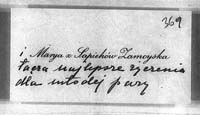 369
i Marya z Sapiehów Zamoyska
łączą najlepsze życzenia
dla młodej pary